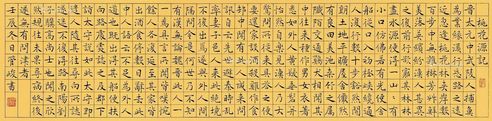 桃花源記
晉太元中武陵人捕魚
為業緣溪行忘路之遠
近忽逢桃花林夾岸數
百步中無雜樹芳草鮮
美落英繽紛漁人甚異
之復前行欲窮其林林
盡水源便得一山山有
小口仿佛若有光便舍
船從口入初極狹纔通
人復行數十步豁然開
朗土地平曠屋舍儼然
有良田美池桑竹之屬
阡陌交通雞犬相聞其
中往來種作男女衣著
悉如外人黃髮垂髫並
怡然自樂見漁人乃大
驚問所從來具答之便
要還家設酒殺雞作食
村中聞有此人咸來問
訊自云先世避秦時亂
率妻子邑人來此絕境
不復出焉遂與外人間
隔問今是何世乃不知
有漢無論魏晉此人一
一為具言所聞皆歎惋
餘人各復延至其家皆
出酒食停數日辭去此
中人語云不足為外人
道也既出得其船便扶
向路處處誌之及郡下
詣太守說如此太守即
遣人隨其往尋向所誌
遂迷不復得路南陽劉
子驥高尚士也聞之欣
然規往未果尋病終後
遂無問津者
壬辰冬日管峻書